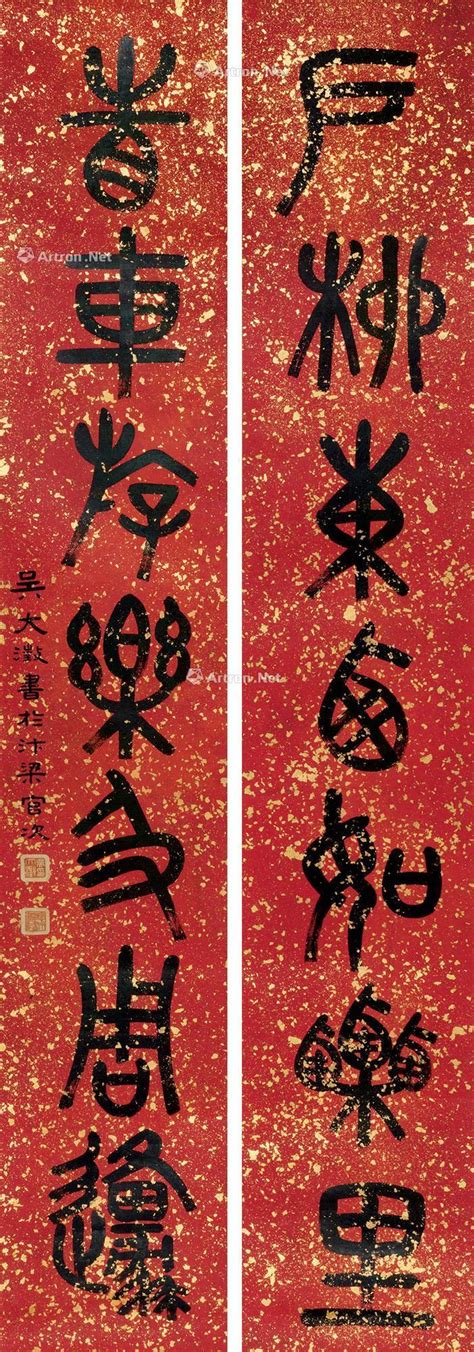 户柳東每如栗里
省車游樂及周邍
吳大澂書於汴梁官次
Artron.Net
Artron.Net
Artron.Net